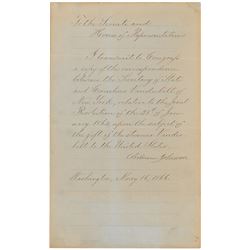 To the Senate and
House of Representatives
I transmit to Congress
a copy of the correspondence
between the Secretary of State
and Cornelius Vanderbilt of
New York, relative to the joint
Resolution of the 28th of Jan-
uary 1864, upon the subject of
the gift of the steamer Vander-
bilt to the United States.
Andrew Johnson
Washington, May 16, 1866.